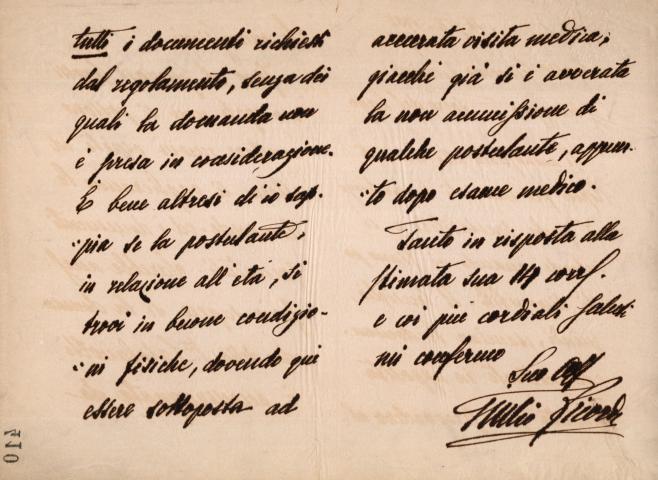 tutti i documenti richiesti
dal regolamento, senza dei
quali la domanda non
è presa in considerazione.
È bene altresì ch'io sap-
pia se la postulante,
in relazione all'età, si
trovi in buone condizio-
ni fisiche, dovendo qui
essere sottoposta ad
accurata visita medica;
giacchè già si è avverata
la non ammissione di
qualche postulante, appun-
to dopo esame medico.
Tanto in risposta alla
stimata sua 14 corr.
e coi più cordiali saluti
mi confermo
Suo
Giulio Ricordi
410